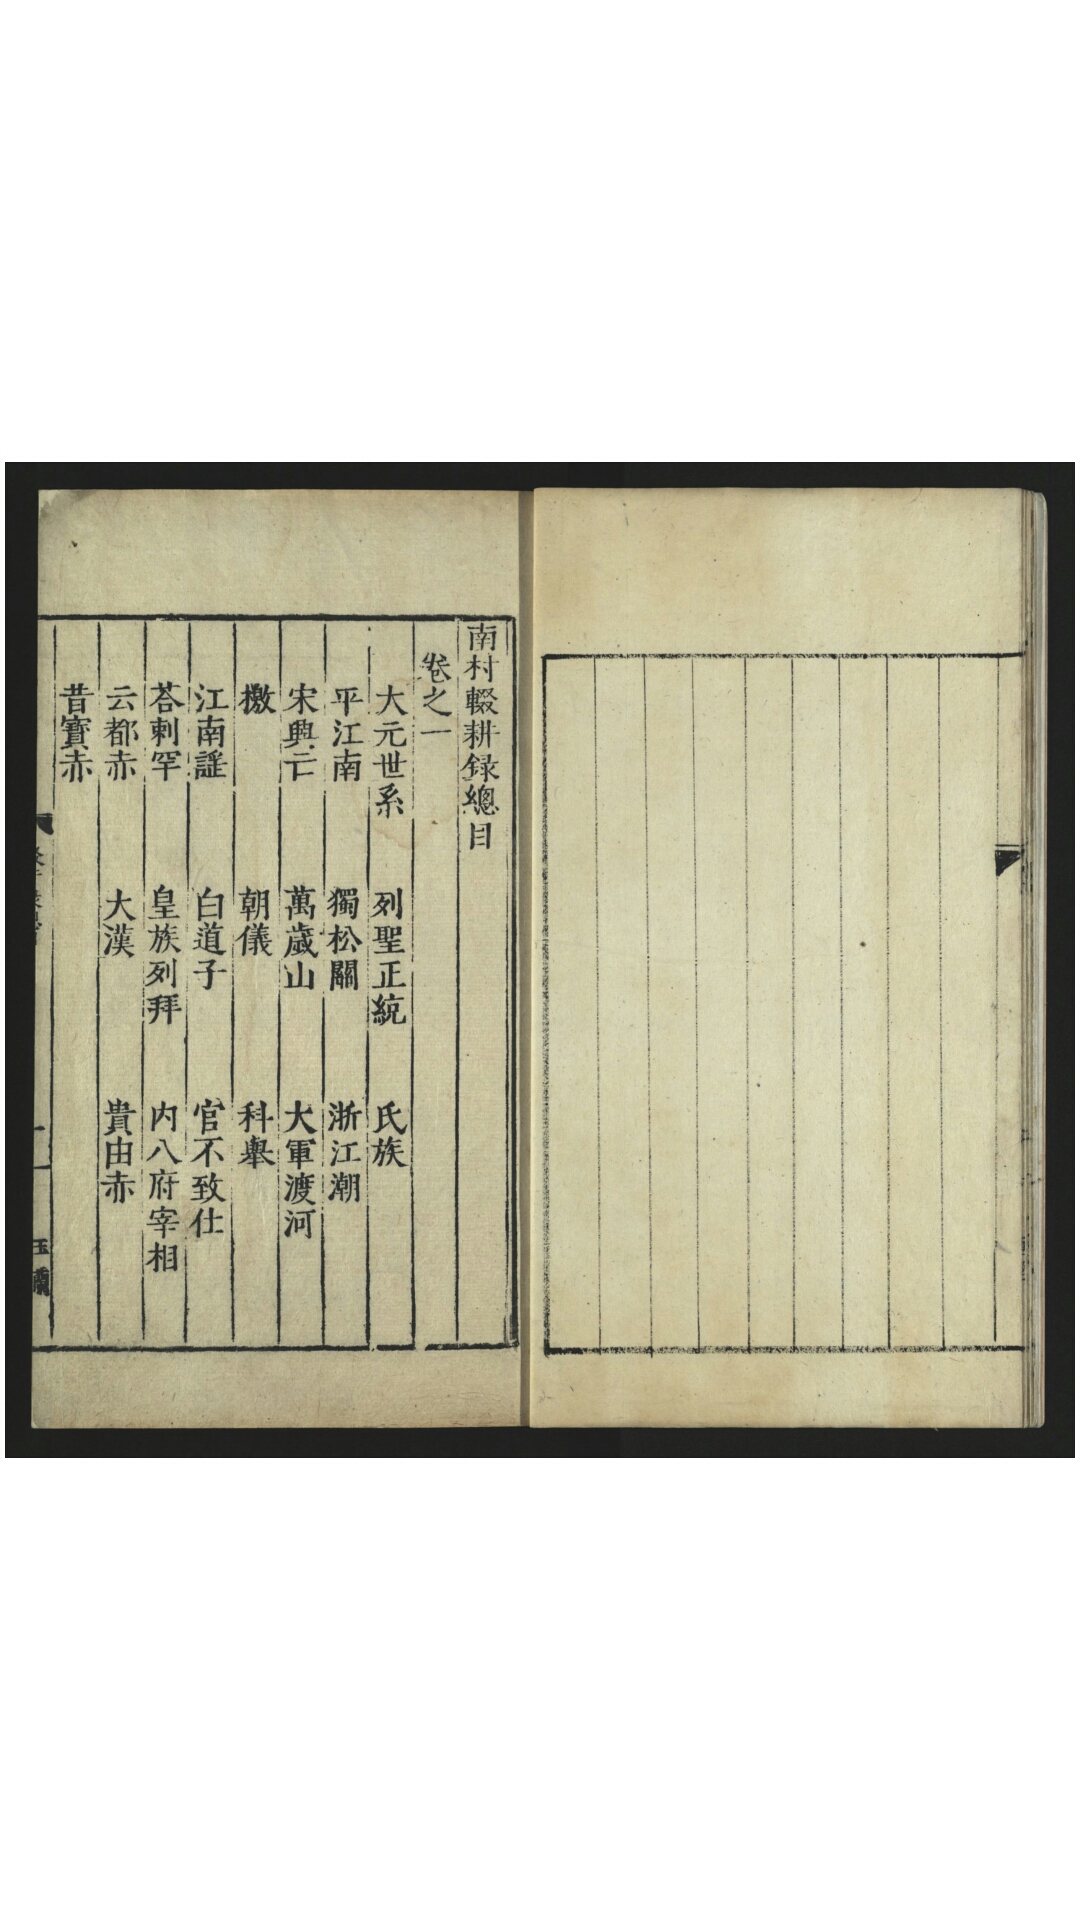 南村輟耕録總目
卷之一
大元世系 列聖正統 氏族
平江南 獨松關 浙江潮
宋興亡 萬歲山 大軍渡河
檄 朝儀 科舉
江南謠 白道子 官不致仕
荅剌罕 皇族列拜 内八府宰相
云都赤 大漢 貴由赤
昔寶赤